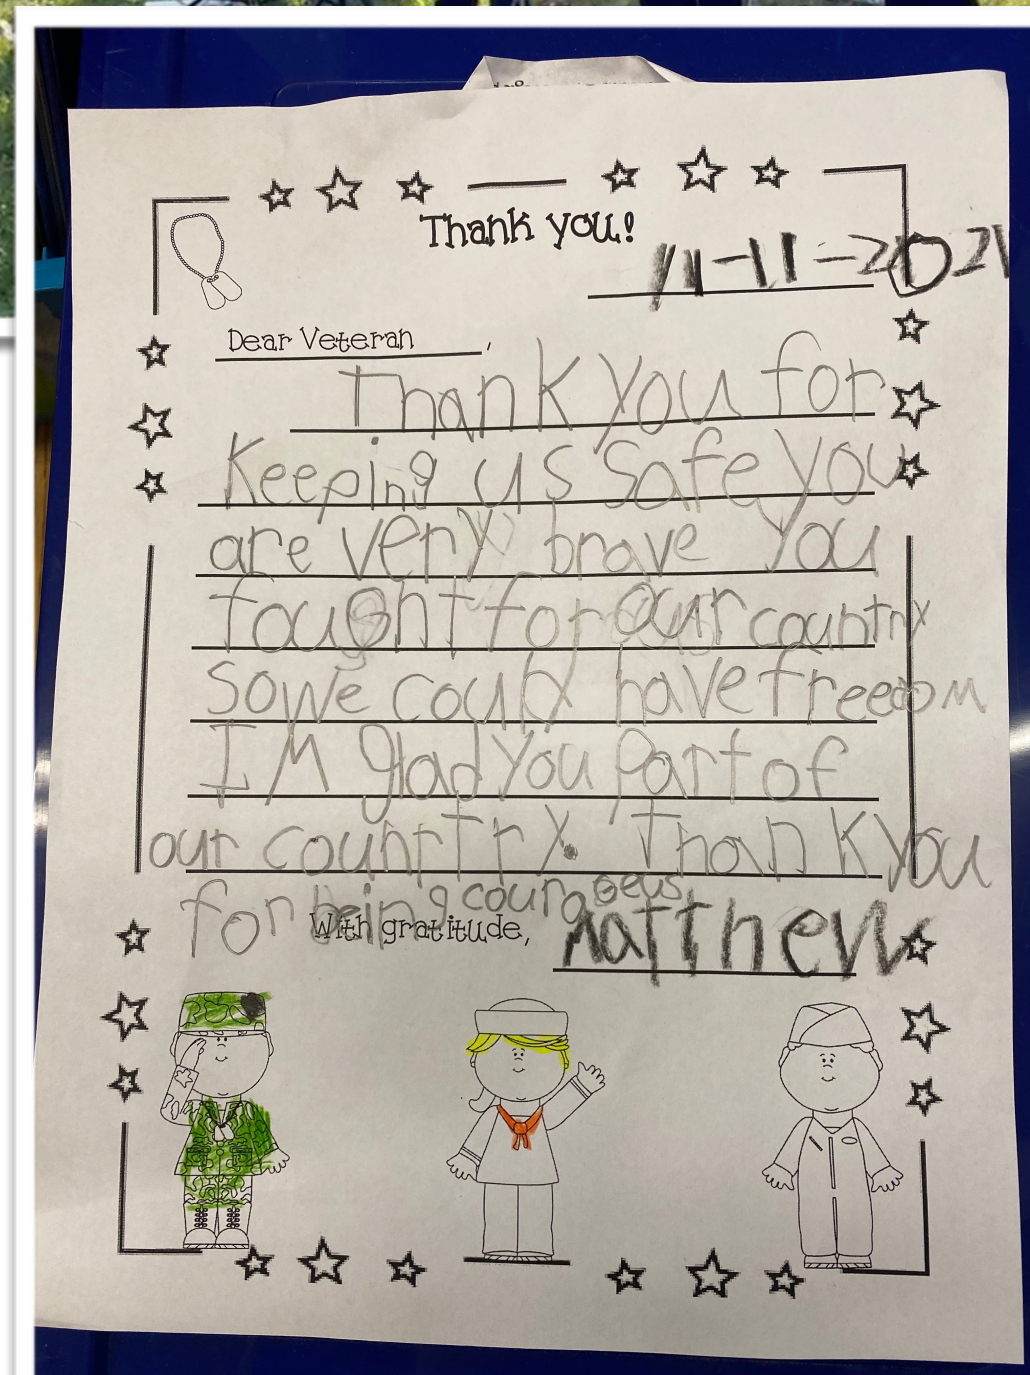 Thank you!
11-11-2021
Dear Veteran,
Thank you for
Keeping us safe you
are very brave You
fought for our country
so we could have freedom
I M glad you part of
our countrry. Thank you
for being courageus.
With gratitude, Matthew